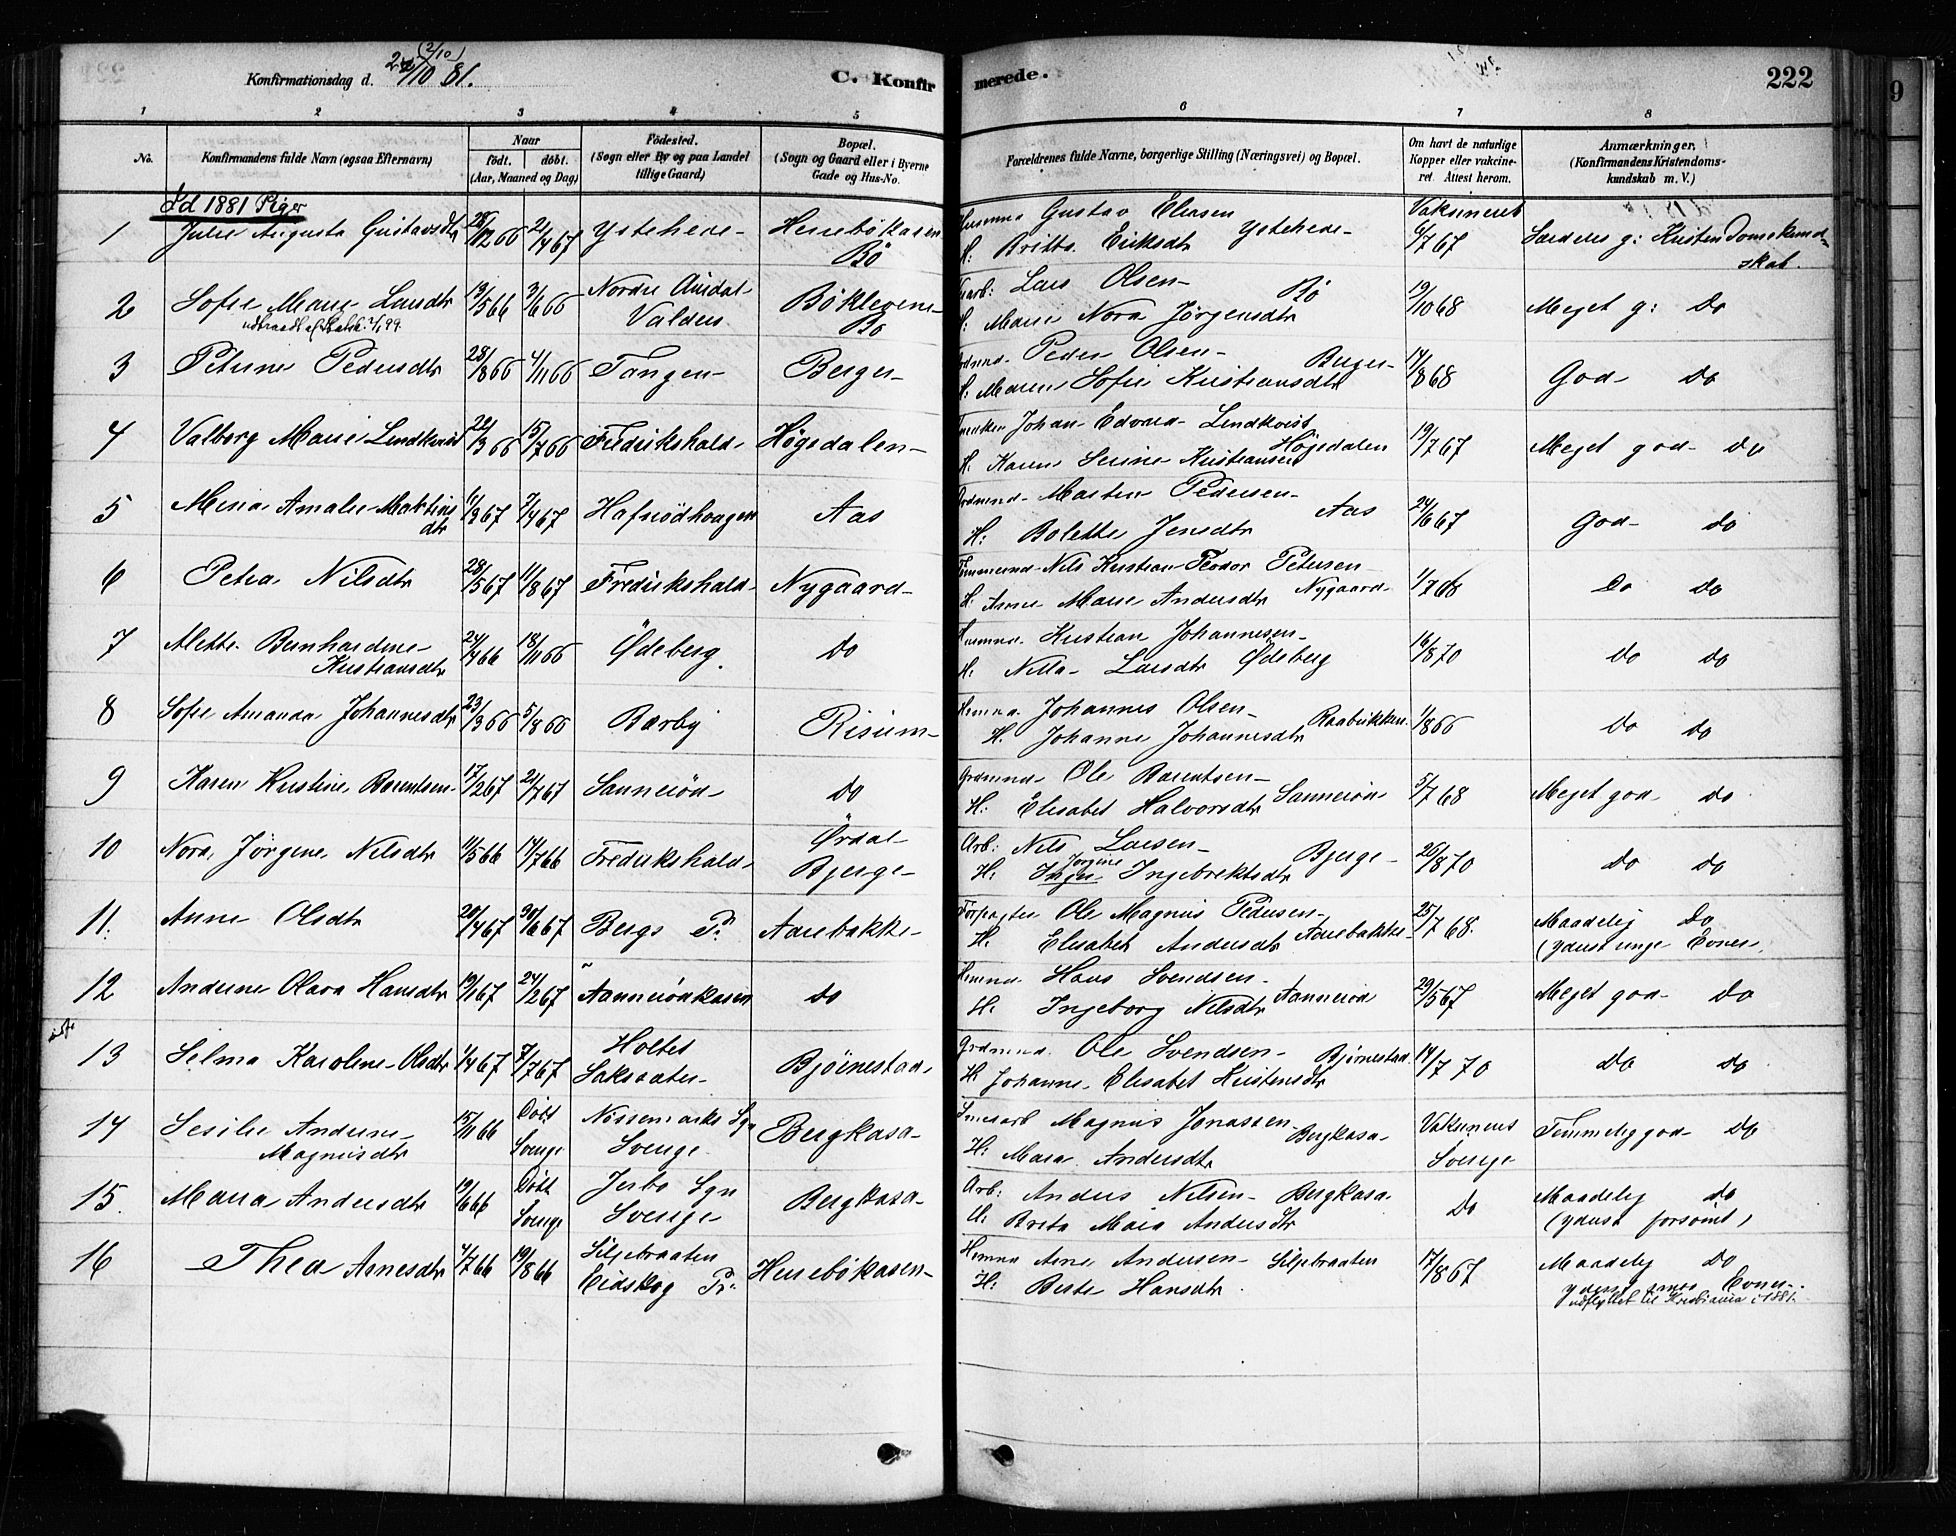 Konfirmationsdag d. 2/10 81. (2/10)
C. Konfirmerede.
222
9
1 2 3 4 5 6 7 8
No.
Konfirmandens fulde Navn (ogsaa Efternavn)
Naar
födt. döbt.
(Aar, Maaned og Dag)
Födested.
(Sogn eller By og paa Landet
tillige Gaard)
Bopæl.
(Sogn og Gaard eller i Byerne
Gade og Hus-No.
Forældrenes fulde Navne, borgerlige Stilling (Næringsvei) og Bopæl.
Om havt de naturlige
Kopper eller vakcine-
ret. Attest herom.
Anmærkninger,
(Konfirmandens Kristendoms-
kundskab m. V.)
1881 Piger
1 Julie Augusta Gustavsdtr 28/12 66 21/4 67 Ystehede Bö Gustav Elersen Vaksineret
H: Britta Eriksdtr Ystehede 6/7 67 Særdeles g: Kristendomskund-
skab.
2 Sofie Marie Larsdtr 13/5 66 3/6 66 Nordre Aurdal Valders Böklevene Bö Lars Olsen Bö
H: Marie Nora Jörgensdtr 19/10 68 Meget g: Do
3 Petrine Pedersdtr 28/8 66 4/11 66 Tangen Berger Peder Olsen Berger
H: Maren Sofie Kristiansdtr 14/8 68 God Do
4 Valborg Marie Lindkvist 22/3 66 15/7 66 Fredrikshald Högsdalen Johan Edvard Lindkvist
H. Karen Serine Kristiansen Högsdalen 19/7 67 Meget god Do
5 Mina Amalie Martins
dtr 11/3 67 7/4 67 Aas Grdmnd Morten Pedersen Aas
H: Bolette Jensdtr 24/6 67 God Do
6 Petra Nilsdtr 28/5 67 11/8 67 Fredrikshald Nygaard Nils Kristian Teodor Petersen
H. Anne Marie Andersdtr Nygaard 1/7 68 Do Do
7 Alette Bernhardine
Kristiansdtr 24/4 66 18/11 66 Ödeberg Do Husmnd. Kristian Johannesen
H. Nilla Larsdtr Ödeberg 16/8 70 Do Do
8 Sofie Amanda Johannesdtr 23/3 66 5/8 66 Bærby Risum Johannes Olsen
H. Johanne Johannesdtr 1/8 66 Do Do
9 Karen Kristine Berentsen 17/2 67 21/7 67 Sanneröd Do Grdmnd Ole Berentsen
H: Elisabet Halvorsdtr Sanneröd 5/7 68 Meget god Do
10 Nora Jörgine Nilsdtr 11/5 66 14/7 66 Fredrikshald Ördal
Bjerge Arb: Nils Larsen Bjerge
Jörgine
H: Inger Ingebrektsdtr 26/8 70 Do Do
11. Anne Olsdtr 20/4 67 30/6 67 Bergs P. Aarebakke Forpagter Ole Magnus Pedersen
H. Elisabet Andersdtr Aarebakke 25/7 68. Maadelig Do
(yderst ringe Evner,
12 Anderne Olava Hansdtr 19/1 67 24/2 67 Aannerödkasen Do Hans Svendsen
H. Ingeborg Nilsdtr Aanneröd 29/5 67 Meget god Do
13 Selma Karoline Olsdtr 1/4 67 7/7 67 Holtet Björnestad Grdmnd. Ole Svendsen Björnestad
H. Johanne Elisabet Kristensdtr 14/7 70 Do Do
14 Sesilie Anderne
Magnusdtr 15/11 66 Döbt
Sverige Nössemarks Sgn
Sverige Bergkasa Magnus Jonassen Bergkasa
H: Maria Andersdtr Vaksineret
Sverige Temmelig god Do
15. Maria Andersdtr 19/6 66 Döbt
Sverige Järbo Sgn
Sverige Bergkasa Arb: Anders Nilsen Bergkasa
H: Brita Maia Andersdtr Do Maadelig Do
(yderst forsömt)
16 Thea Arnesdtr 4/7 66 19/8 66 Siljebraaten
Eidskog P. Herrebökasen Arne Andersen Siljebraaten
H: Berte Hansdtr 17/8 67 Maadelig Do
yderst smaa Evner
udflyttet til Kristiania i 1881.